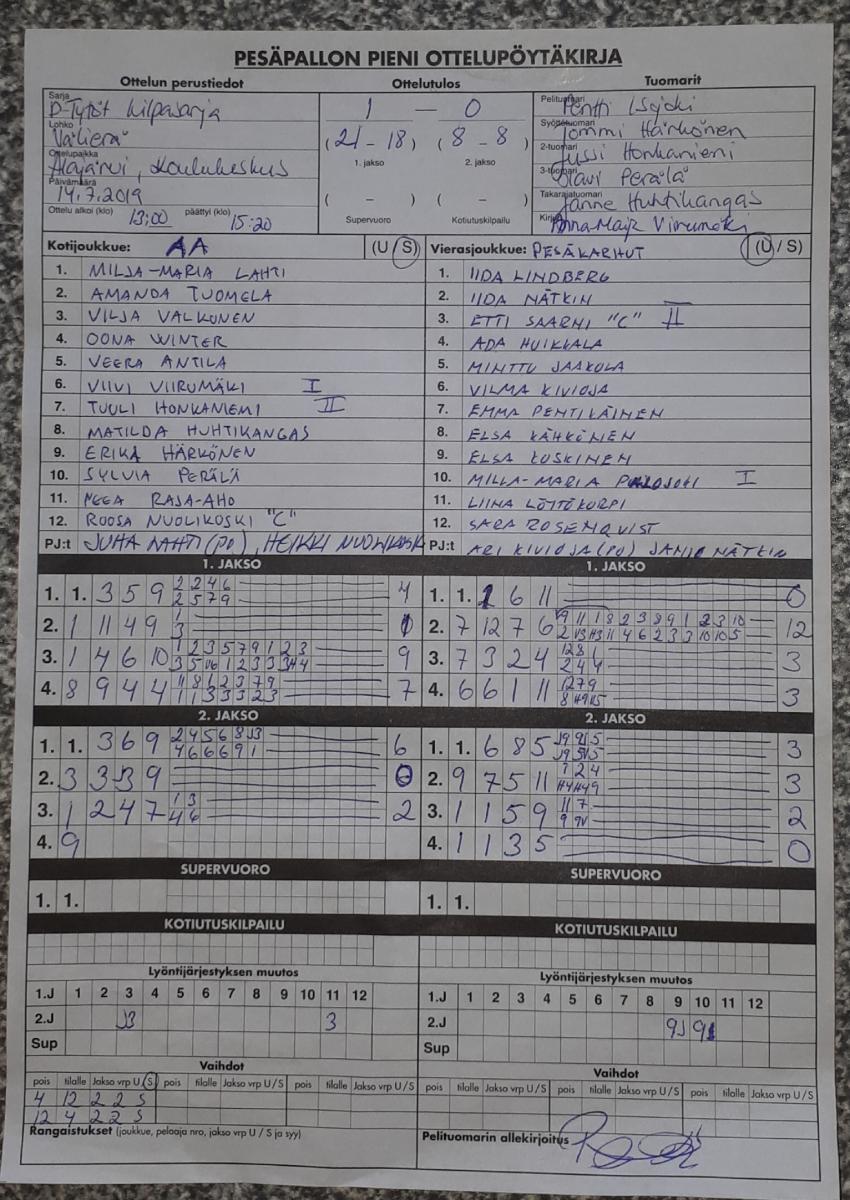 PESÄPALLON PIENI OTTELUPÖYTÄKIRJA
Ottelun perustiedot
Sarja
D-Tytöt kilpasarja
Lohko
Välierä
Ottelupaikka
Alajärvi, Koulukeskus
Päivämäärä
14.7.2019
Ottelu alkoi (klo) 13:00 päättyi (klo) 15:20
Ottelutulos
1 – 0
(21 - 18) (8 - 8)
1. jakso 2. jakso
( – ) ( – )
Supervuoro Kotiutuskilpailu
Tuomarit
Pelituomari Pentti Isojoki
Syöttötuomari Tommi Härkönen
2-tuomari Jussi Honkaniemi
3-tuomari Olavi Perälä
Takarajatuomari Janne Huhtikangas
Kirjuri Anna-Maija Viirumäki
Kotijoukkue: AA (U / S)
1. MILJA-MARIA LAHTI
2. AMANDA TUOMELA
3. VILJA VALKONEN
4. OONA WINTER
5. VEERA ANTILA
6. VIIVI VIIRUMÄKI I
7. TUULI HONKANIEMI II
8. MATILDA HUHTIKANGAS
9. ERIKA HÄRKÖNEN
10. SYLVIA PERÄLÄ
11. NEEA RAJA-AHO
12. ROOSA NUOLIKOSKI "C"
PJ:t JUHA LAHTI (PJ), HEIKKI NUOLIKOSKI
Vierasjoukkue: PESÄKARHUT (U / S)
1. IIDA LINDBERG
2. IIDA NÄTKIN
3. ETTI SAARNI "C" II
4. ADA HUIKKALA
5. MINTTU JAAKOLA
6. VILMA KIVIOJA
7. EMMA PENTIKÄINEN
8. ELSA KÄHKÖNEN
9. ELSA KOSKINEN
10. MILLA-MARIA I
11. LIINA LÖYTÖKORPI
12. SARA ROSENQVIST
PJ:t ARI KIVIOJA (PJ) JANIO NÄTKIN
1. JAKSO
1. 1. 3 5 9 2 2 4 6 4
2 5 7 9
2. 1 11 4 9 1
3
3. 1 4 6 10 1 2 3 5 7 9 1 2 3 9
4. 8 9 4 4 11 8 1 2 3 7 9 7
1 1 3 3 3 2 3
1. JAKSO
1. 1. 1 6 11 0
2. 7 12 7 6 12
3. 7 3 2 4 3
2 4 4
4. 6 6 1 11 3
2. JAKSO
1. 1. 3 6 9 2 4 5 6 8 J3 6
4 6 6 6 9 1
2. 3 3 3 9 0
3. 1 2 4 7 1 3 2
4 6
4. 9
2. JAKSO
1. 1. 6 8 5 3
2. 9 7 5 11 3
3. 1 1 5 9 11 7 2
4. 1 1 3 5 0
SUPERVUORO
1. 1.
SUPERVUORO
1. 1.
KOTIUTUSKILPAILU
KOTIUTUSKILPAILU
Lyöntijärjestyksen muutos
1.J 1 2 3 4 5 6 7 8 9 10 11 12
2.J J3 3
Sup
Lyöntijärjestyksen muutos
1.J 1 2 3 4 5 6 7 8 9 10 11 12
2.J 9J
Sup
Vaihdot
pois tilalle Jakso vrp U/S pois tilalle Jakso vrp U/S pois tilalle Jakso vrp U/S
4 12 2 2 S
12 4 2 2 S
Rangaistukset (joukkue, pelaaja nro, jakso vrp U / S ja syy)
Vaihdot
pois tilalle Jakso vrp U/S pois tilalle Jakso vrp U/S pois tilalle Jakso vrp U/S
Pelituomarin allekirjoitus